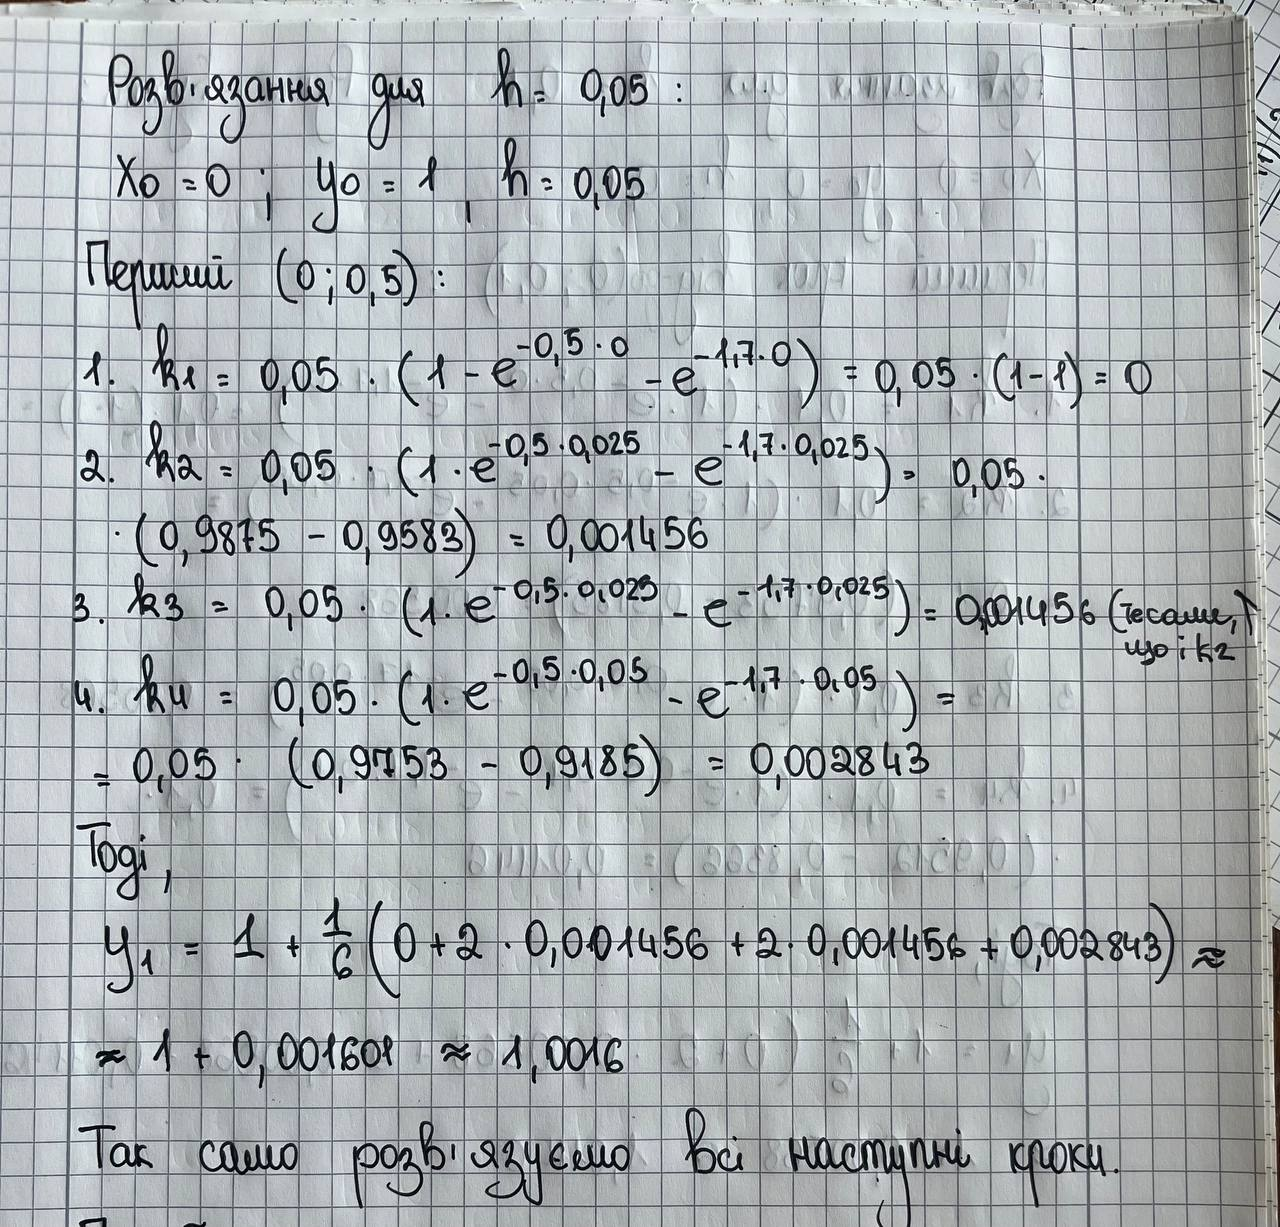 Розв'язання для h = 0,05 :
x₀ = 0 ; y₀ = 1 , h = 0,05
Перший (0; 0,5) :
1. k₁ = 0,05 · (1 - e^(-0,5·0) - e^(-1,7·0)) = 0,05 · (1-1) = 0
2. k2 = 0,05 · (1 · e^(-0,5·0,025) - e^(-1,7·0,025)) = 0,05 ·
· (0,9875 - 0,9583) = 0,001456
3. k3 = 0,05 · (1 · e^(-0,5·0,025) - e^(-1,7·0,025)) = 0,001456 (те саме,
що і k2)
4. k4 = 0,05 · (1 · e^(-0,5·0,05) - e^(-1,7·0,05)) =
= 0,05 · (0,9753 - 0,9185) = 0,002843
Тоді,
y₁ = 1 + 1/6 (0 + 2 · 0,001456 + 2 · 0,001456 + 0,002843) ≈
≈ 1 + 0,001601 ≈ 1,0016
Так само розв'язуємо всі наступні кроки.